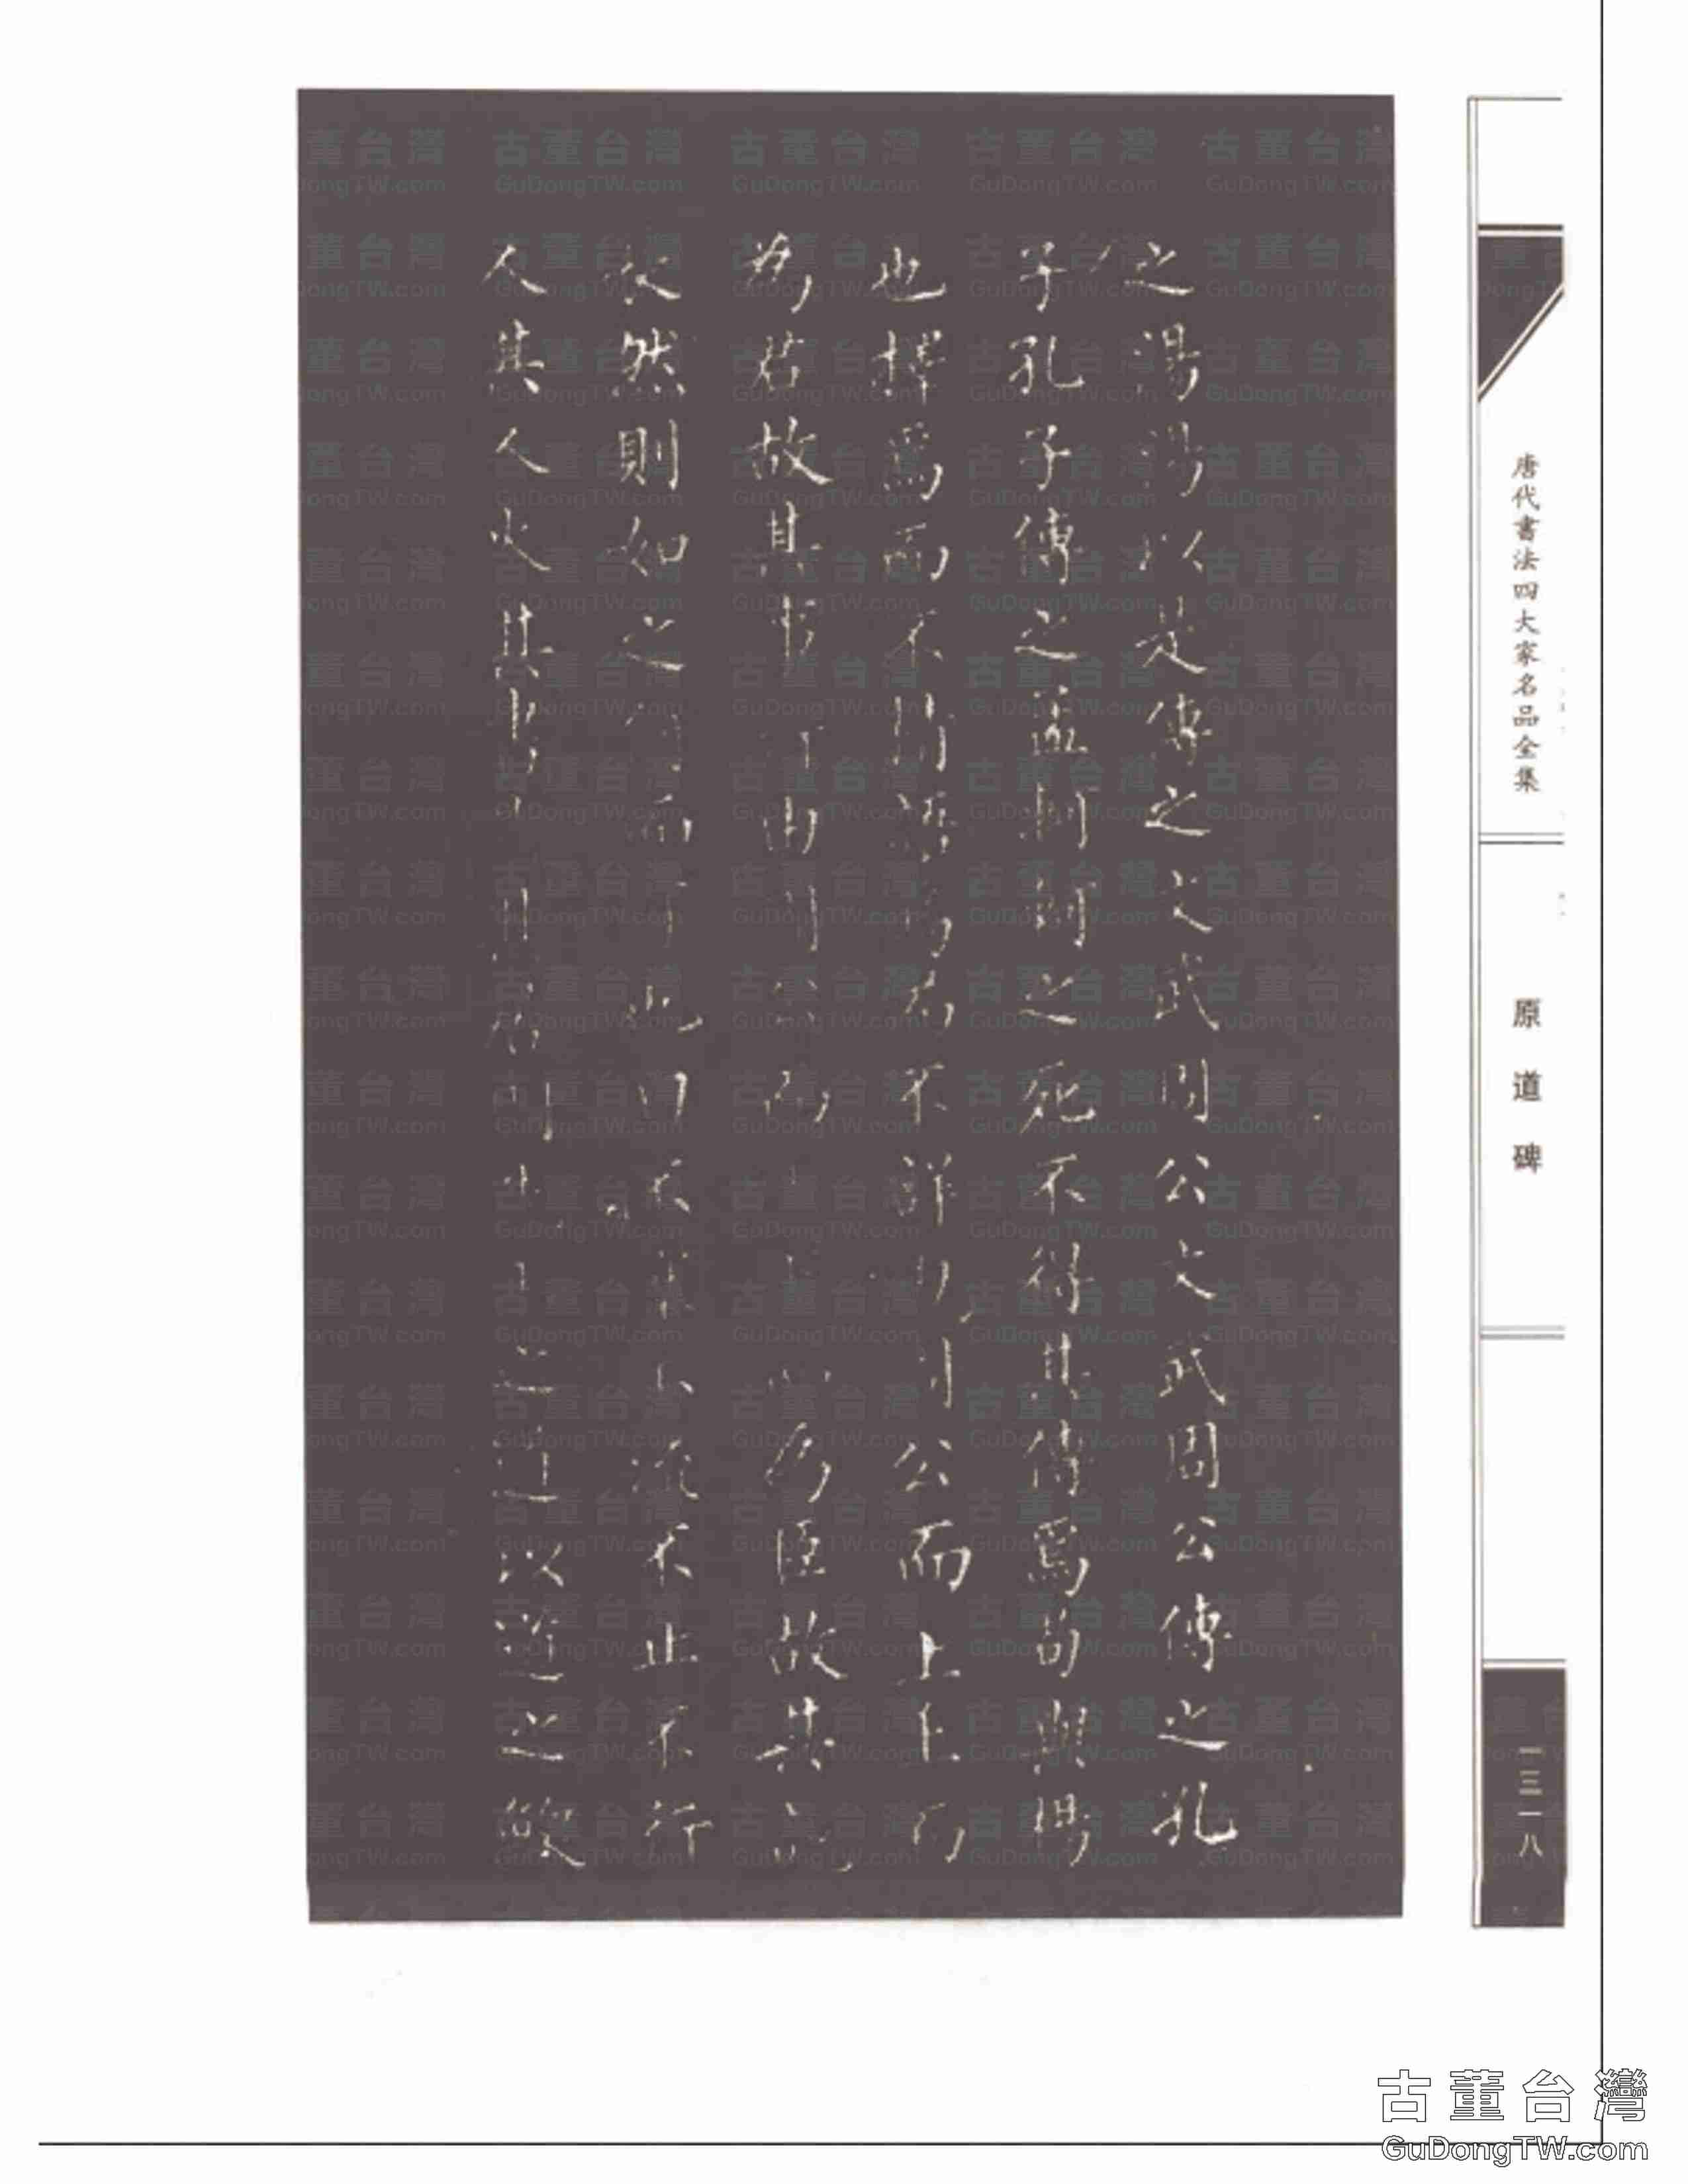 之湯湯以是傳之文武周公文武周公傳之孔
子孔子傳之孟軻軻之死不得其傳焉荀與楊
也擇焉而不精語焉而不詳由周公而上上而
為君故其事行由周公而為臣故其說
長然則如之何而可也曰不塞不流不止不行
人其人火其書其居明先王之道以道之鰥
唐代書法四大家名品全集
原道碑
一三一八
古董台灣
GuDongTW.com